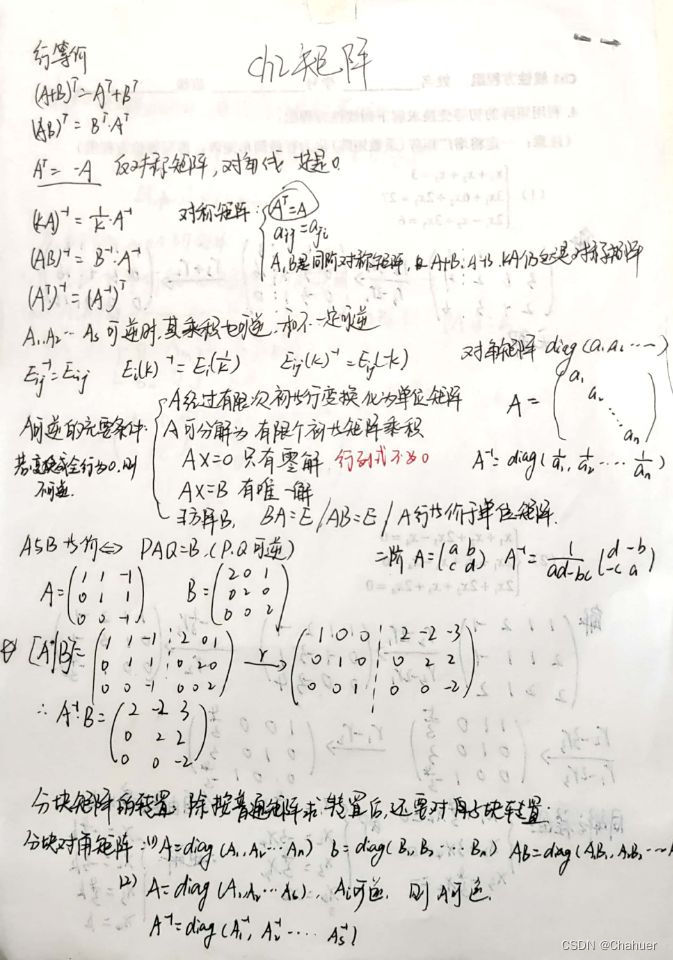 ch2矩阵
行等价
(A+B)ᵀ=Aᵀ+Bᵀ
(AB)ᵀ=Bᵀ·Aᵀ
Aᵀ=-A 反对称矩阵,对角线 是0.
(kA)⁻¹=1/k·A⁻¹
(AB)⁻¹=B⁻¹·A⁻¹
(Aᵀ)⁻¹=(A⁻¹)ᵀ
对称矩阵:
Aᵀ=A
aij=aji
A,B是同阶对称矩阵,则 A+B,A-B,kA仍然是对称矩阵
A₁,A₂…As可逆时,其乘积也可逆,和不一定可逆
Eij⁻¹=Eij Ei(k)⁻¹=Ei(1/k) Eij(k)⁻¹=Eij(-k)
对角矩阵 diag(a₁a₂……)
A=(a₁ a₂ ⋱ an)
A⁻¹=diag(1/a₁,1/a₂……1/an)
A可逆的充要条件:
若变换或全行为0,则
不可逆.
A经过有限次初等行变换化为单位矩阵
A可分解为有限个初等矩阵乘积
AX=0 只有零解,行列式不为0
AX=B 有唯一解
方阵B, BA=E/AB=E/A行等价于单位矩阵.
A与B等价⇔PAQ=B,(P,Q可逆)
二阶 A=(a b
c d) A⁻¹=1/ad-bc(d -b
-c a)
A=(1 1 -1 B=(2 0 1
0 1 1 0 2 0
0 0 -1) 0 0 2)
[A|B]=(1 1 -1 ⋮ 2 0 1 r→ (1 0 0 ⋮ 2 -2 -3
0 1 1 ⋮ 0 2 0 0 1 0 ⋮ 0 2 2
0 0 -1 ⋮ 0 0 2) 0 0 1 ⋮ 0 0 -2)
∴A⁻¹·B=(2 -2 3
0 2 2
0 0 -2)
分块矩阵的转置,除按普通矩阵求转置后,还要对每子块转置:
分块对角矩阵:(1) A=diag(A₁,A₂…An) b=diag(B₁,B₂…Bn) AB=diag(A₁B₁,A₂B₂…A
(2) A=diag(A₁,A₂…As),Ai可逆,则A可逆.
A⁻¹=diag(A₁⁻¹,A₂⁻¹……As⁻¹)
CSDN @Chahuer